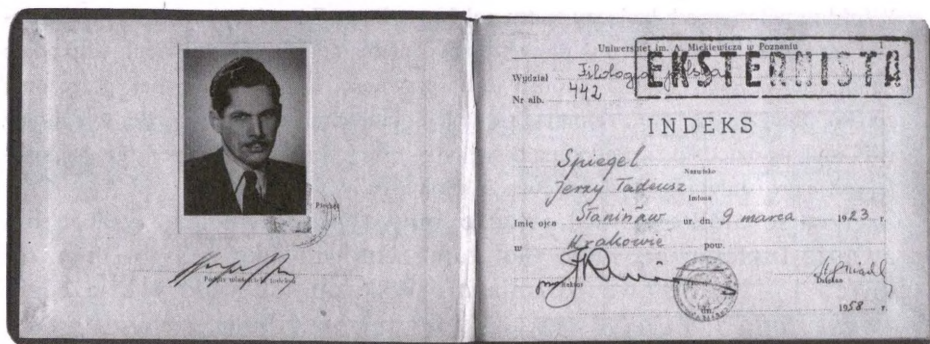 Pieczęć
Podpis właściciela indeksu
1
Uniwersytet im. A. Mickiewicza w Poznaniu
EKSTERNISTA
Wydział Filologia polska
Nr alb. 442
INDEKS
Spiegel
Nazwisko
Jerzy Tadeusz
Imiona
Imię ojca Stanisław ur. dn. 9 marca 1923 r.
w Krakowie pow.
Rektor
Dziekan
dn. 1958 r.